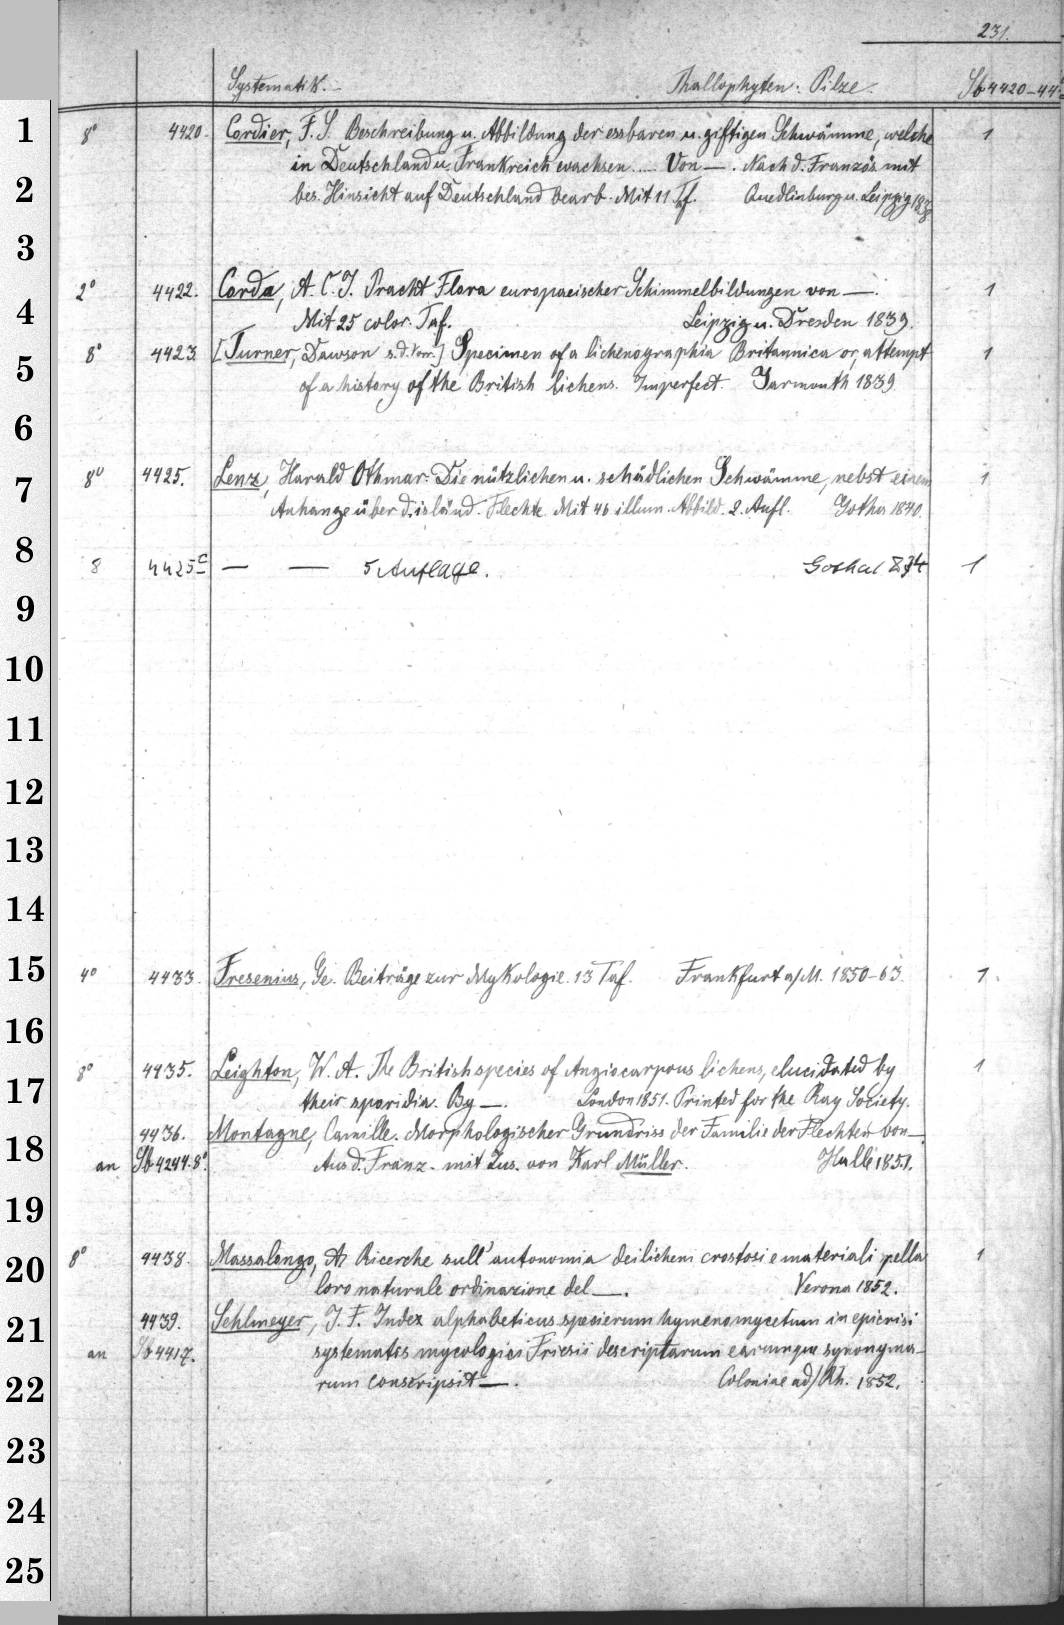 231.
Systematik. Thallophyten: Pilze. Sb 4420-44
1 8° 4420. Cordier, F. S. Beschreibung u. Abbildung der essbaren u. giftigen Schwämme, welche 1
in Deutschland u. Frankreich wachsen .... Von —. Nach d. Französ. mit
2 bes. Hinsicht auf Deutschland bearb. Mit 11 Taf. Quedlinburg u. Leipzig 1838
3
2° 4422. Corda, A. C. J. Pracht Flora europaeischer Schimmelbildungen von —. 1
4 Mit 25 color. Taf. Leipzig u. Dresden 1839.
5 8° 4423 [Turner, Dawson s. d. Vorr.] Specimen of a lichenographia Britannica or, attempt 1
of a history of the British lichens. Imperfect. Yarmouth 1839
6
7 8° 4425. Lenz, Harald Othmar. Die nützlichen u. schädlichen Schwämme, nebst einem 1
Anhange über d. isländ. Flechte. Mit 46 illum. Abbild. 2. Aufl. Gotha 1840.
8 8 4425c — — 5 Auflage. Gotha 874 1
9
10
11
12
13
14
15 4° 4433. Fresenius, Ge. Beiträge zur Mykologie. 13 Taf. Frankfurt a/M. 1850-63. 1
16
8° 4435. Leighton, W. A. The British species of Angiocarpous lichens, elucidated by 1
17 their sporidia. By —. London 1851. Printed for the Ray Society.
18 4436. Montagne, Camille. Morphologischer Grundriss der Familie der Flechten von —.
an Sb 4244.8°. Aus d. Franz. mit Zus. von Karl Müller. Halle 1851.
19
20 8° 4438. Massalongo, A. Ricerche sull' autonomia dei licheni crostosi e materiali pella 1
loro naturale ordinazione del —. Verona 1852.
21 4439. Sehlmeyer, J. F. Index alphabeticus specierum hymenomycetum in epicrisi
an Sb 4417. systematis mycologici Friesii descriptarum earumque synonyma-
22 rum conscripsit —. Coloniae ad/Rh. 1852.
23
24
25